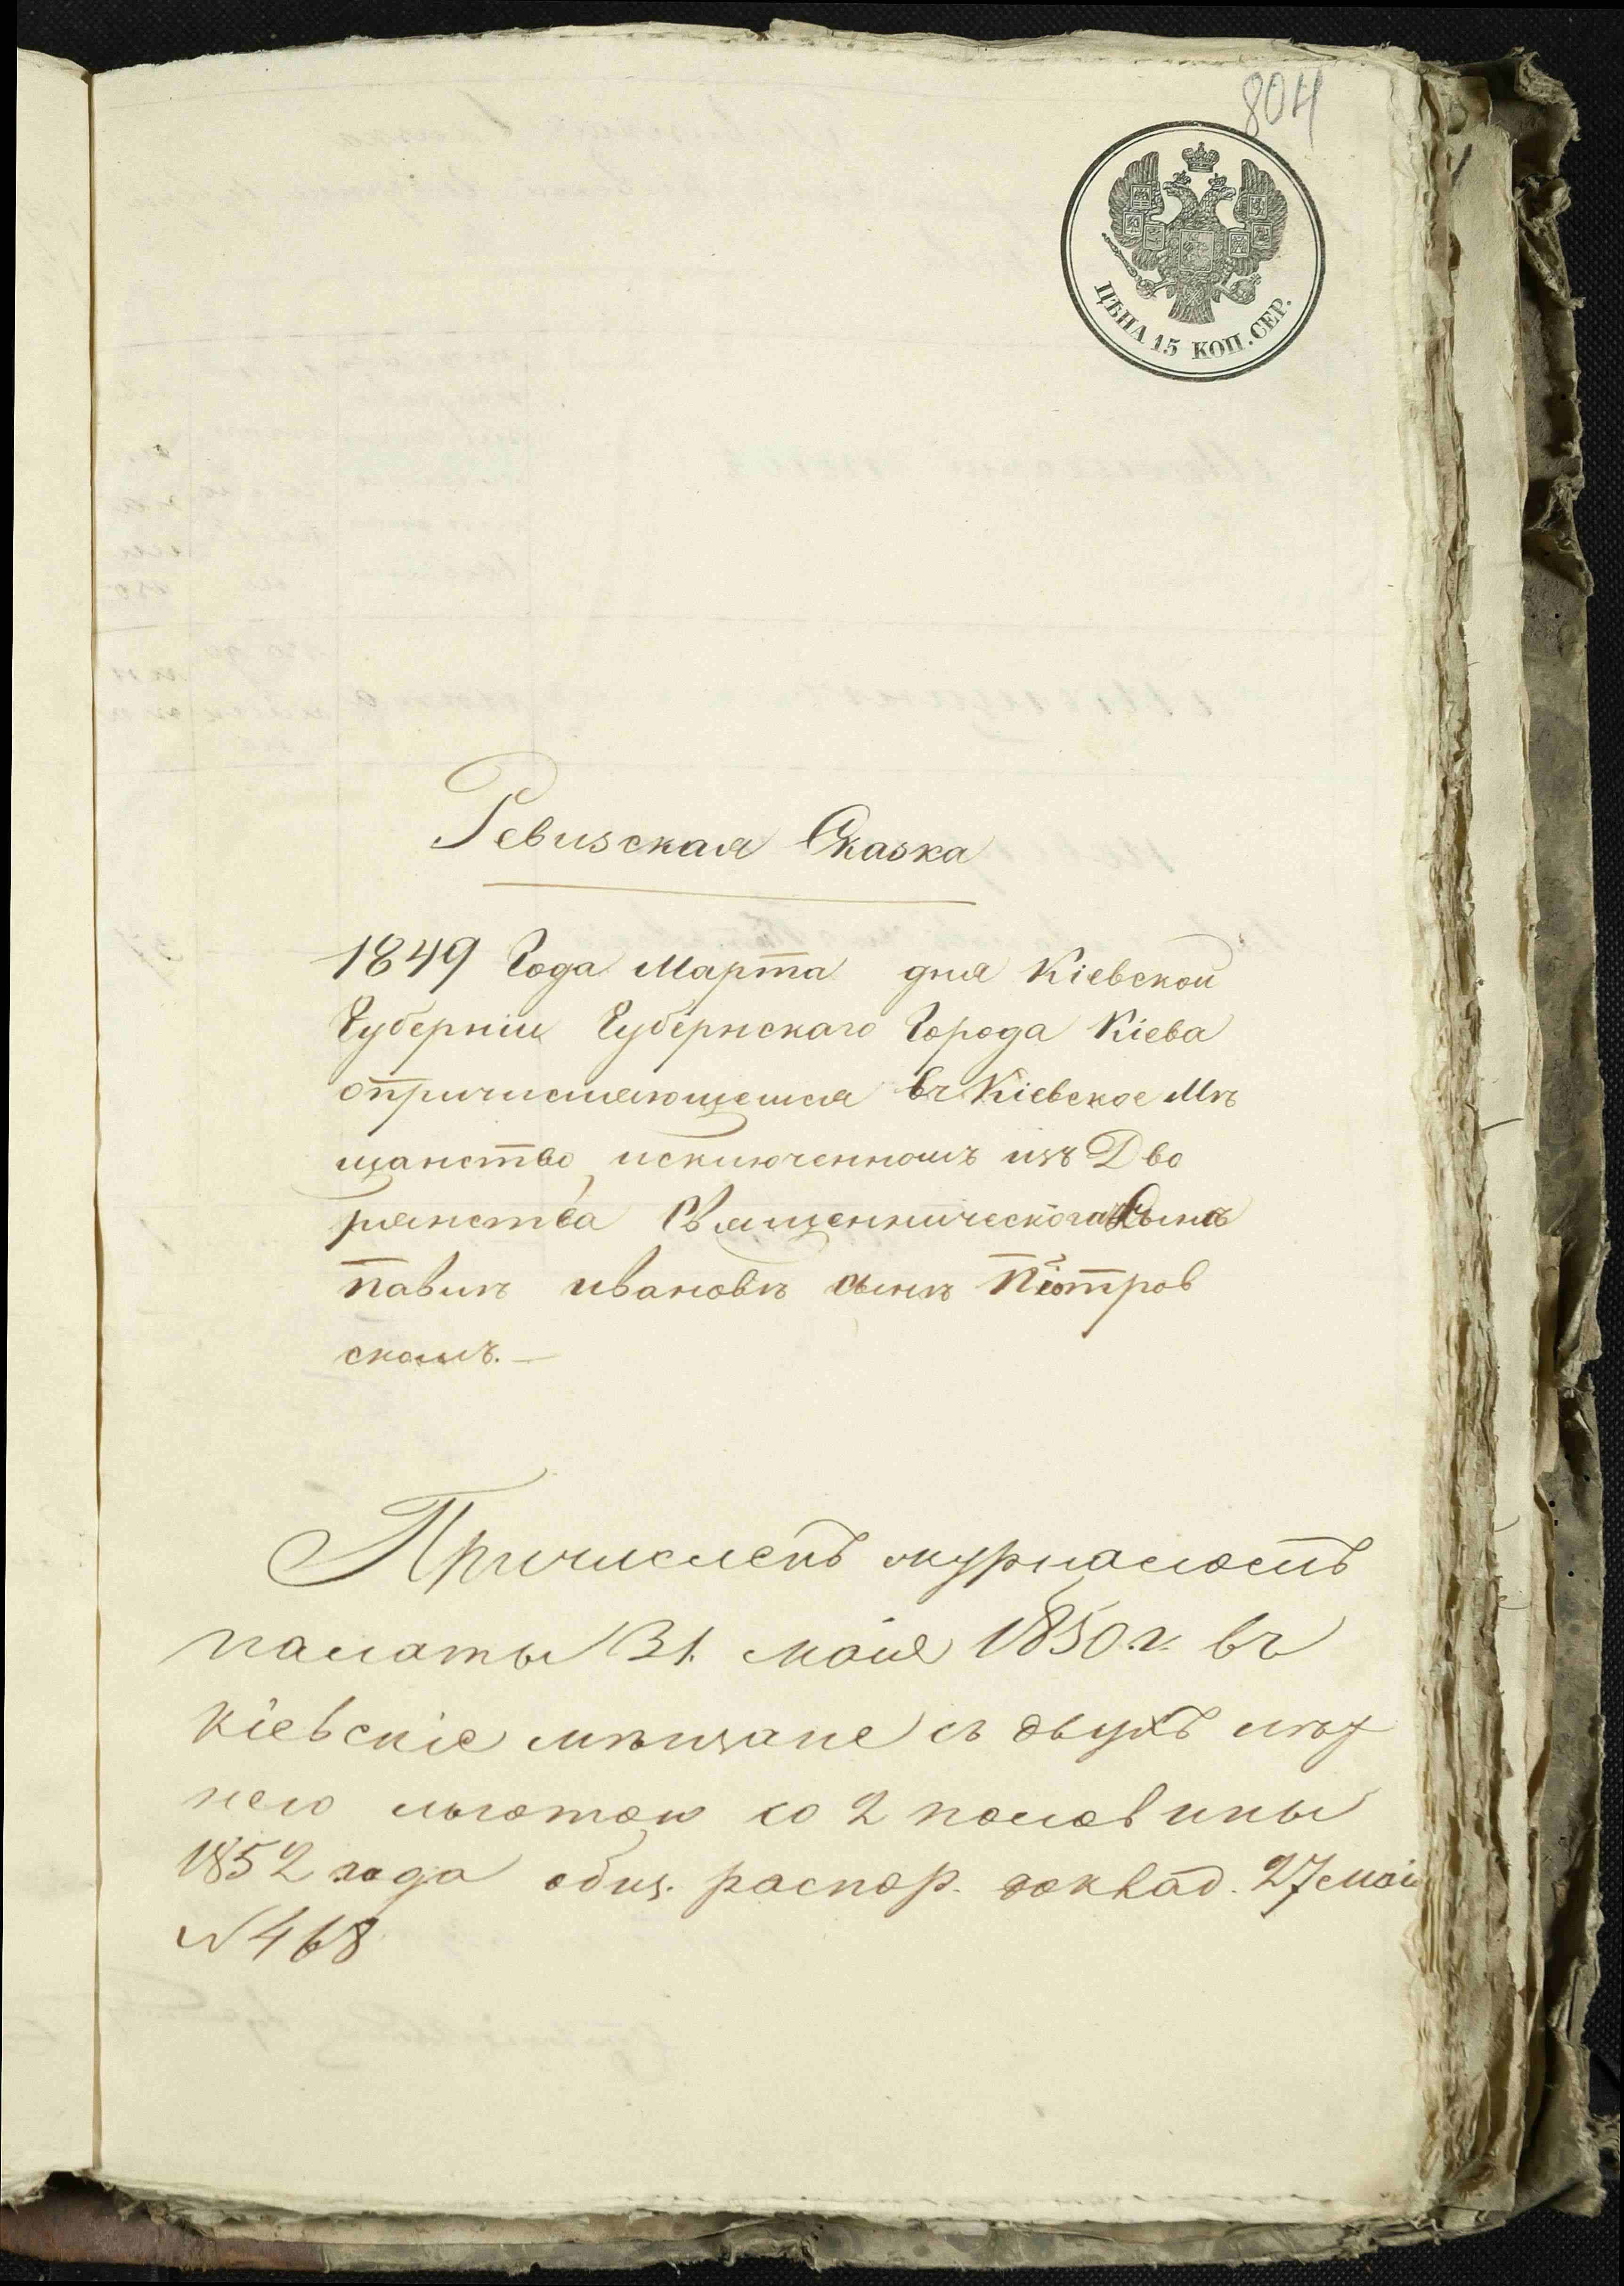 804
ЦѢНА 15 КОП. СЕР.
Ревизская Сказка
1849 Года Марта дня Кіевской
Губерніи Губернскаго Города Кіева
опричисляющемся въ Кіевское Мѣ
щанство исключенномъ изъ Дво
рянства Священническаго Сына
павлѣ ивановѣ сынѣ Піотров
скомъ. —
Причисленъ журналомъ
палаты 31. маія 1850 г. въ
кіевскіе мѣщане съ двухъ лѣт
нею льготою со 2 половины
1852 года общ. распор. доклад. 27 маія
N 468